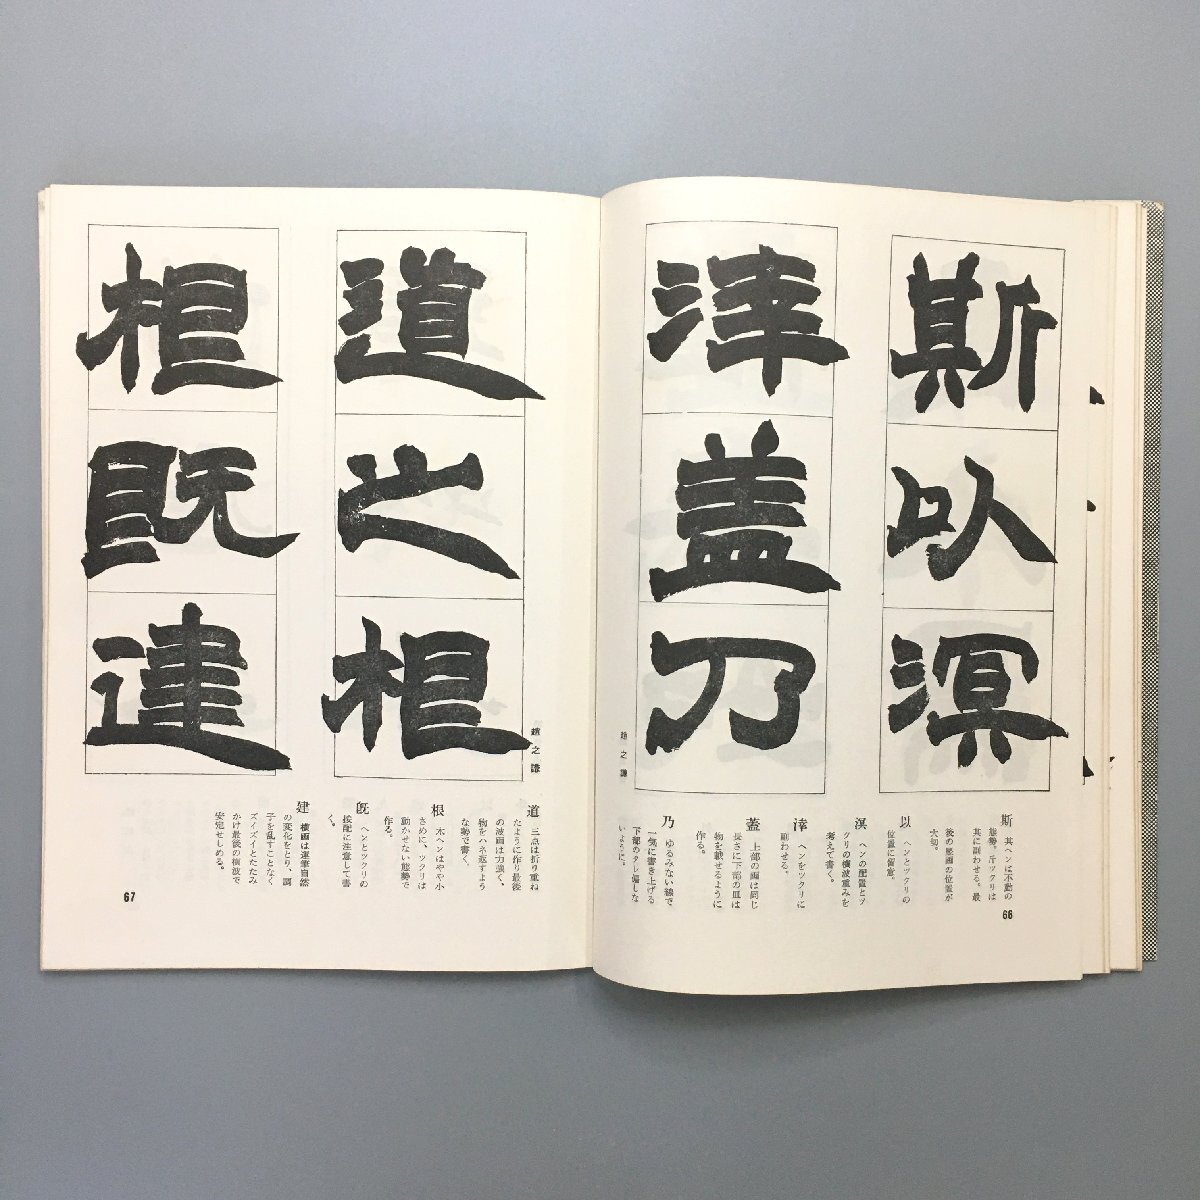 斯
以
溟
涬
蓋
乃
趙之謙
斯 其ヘンは不動の
態勢。斤ツクリは
其に副わせる。最
後の竪画の位置が
大切。
以 ヘンとツクリの
位置に留意。
溟 ヘンの配置とツ
クリの横波重みを
考えて書く。
涬 ヘンをツクリに
副わせる。
蓋 上部の画は同じ
長さに下部の皿は
物を載せるように
作る。
乃 ゆるみない線で
一気に書き上げる
下部のタレ幅しな
いように。
66
道
之
根
根
既
建
趙之謙
道 三点は折り重ね
たように作り最後
の波画は力強く、
物をハネ返すよう
な勢で書く。
根 木ヘンはやや小
さめに、ツクリは
動かせない態勢で
作る。
既 ヘンとツクリの
接配に注意して書
く。
建 横画は運筆自然
の変化をとり、調
子を乱すことなく
ズイズイとたたみ
かけ最後の横波で
安定せしめる。
67